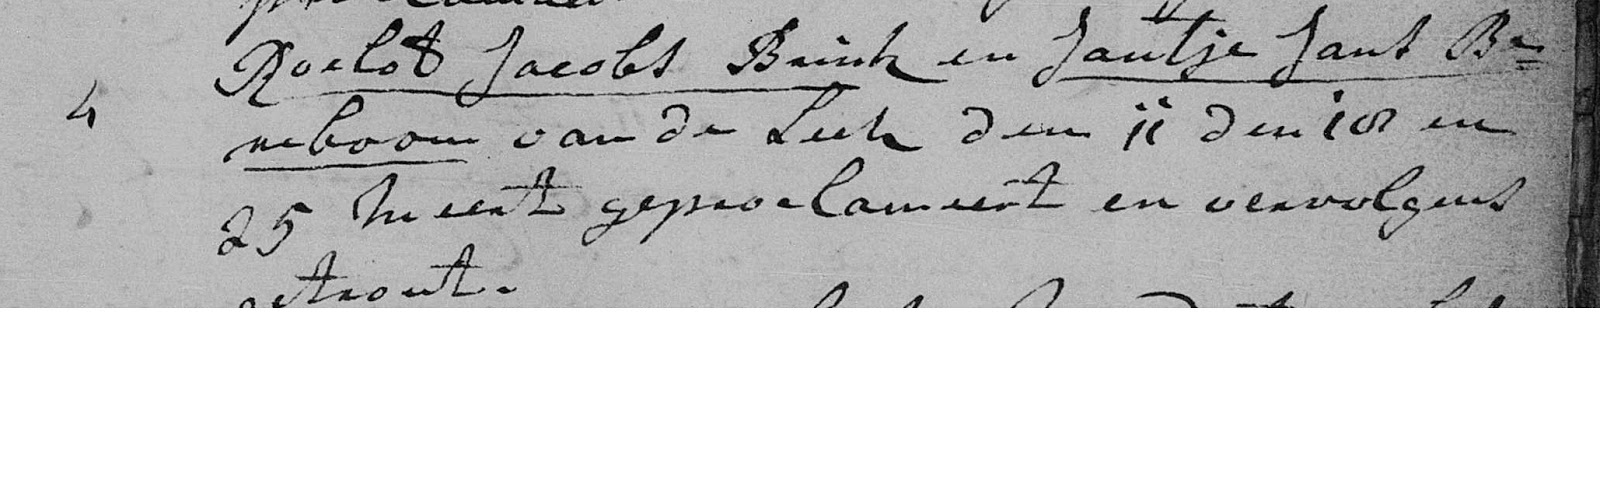 Roelof Jacobs Brink en Jantje Jans Be=
4 neboom van de Leek den 11 den 18 en
25 Meert geproclameert en vervolgens
getrout.